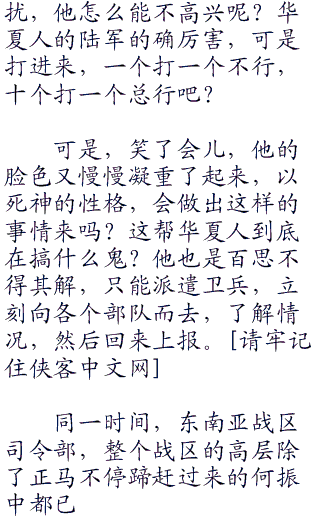 扰，他怎么能不高兴呢？华
夏人的陆军的确厉害，可是
打进来，一个打一个不行，
十个打一个总行吧？
可是，笑了会儿，他的
脸色又慢慢凝重了起来，以
死神的性格，会做出这样的
事情来吗？这帮华夏人到底
在搞什么鬼？他也是百思不
得其解，只能派遣卫兵，立
刻向各个部队而去，了解情
况，然后回来上报。[请牢记
住侠客中文网]
同一时间，东南亚战区
司令部，整个战区的高层除
了正马不停蹄赶过来的何振
中都已